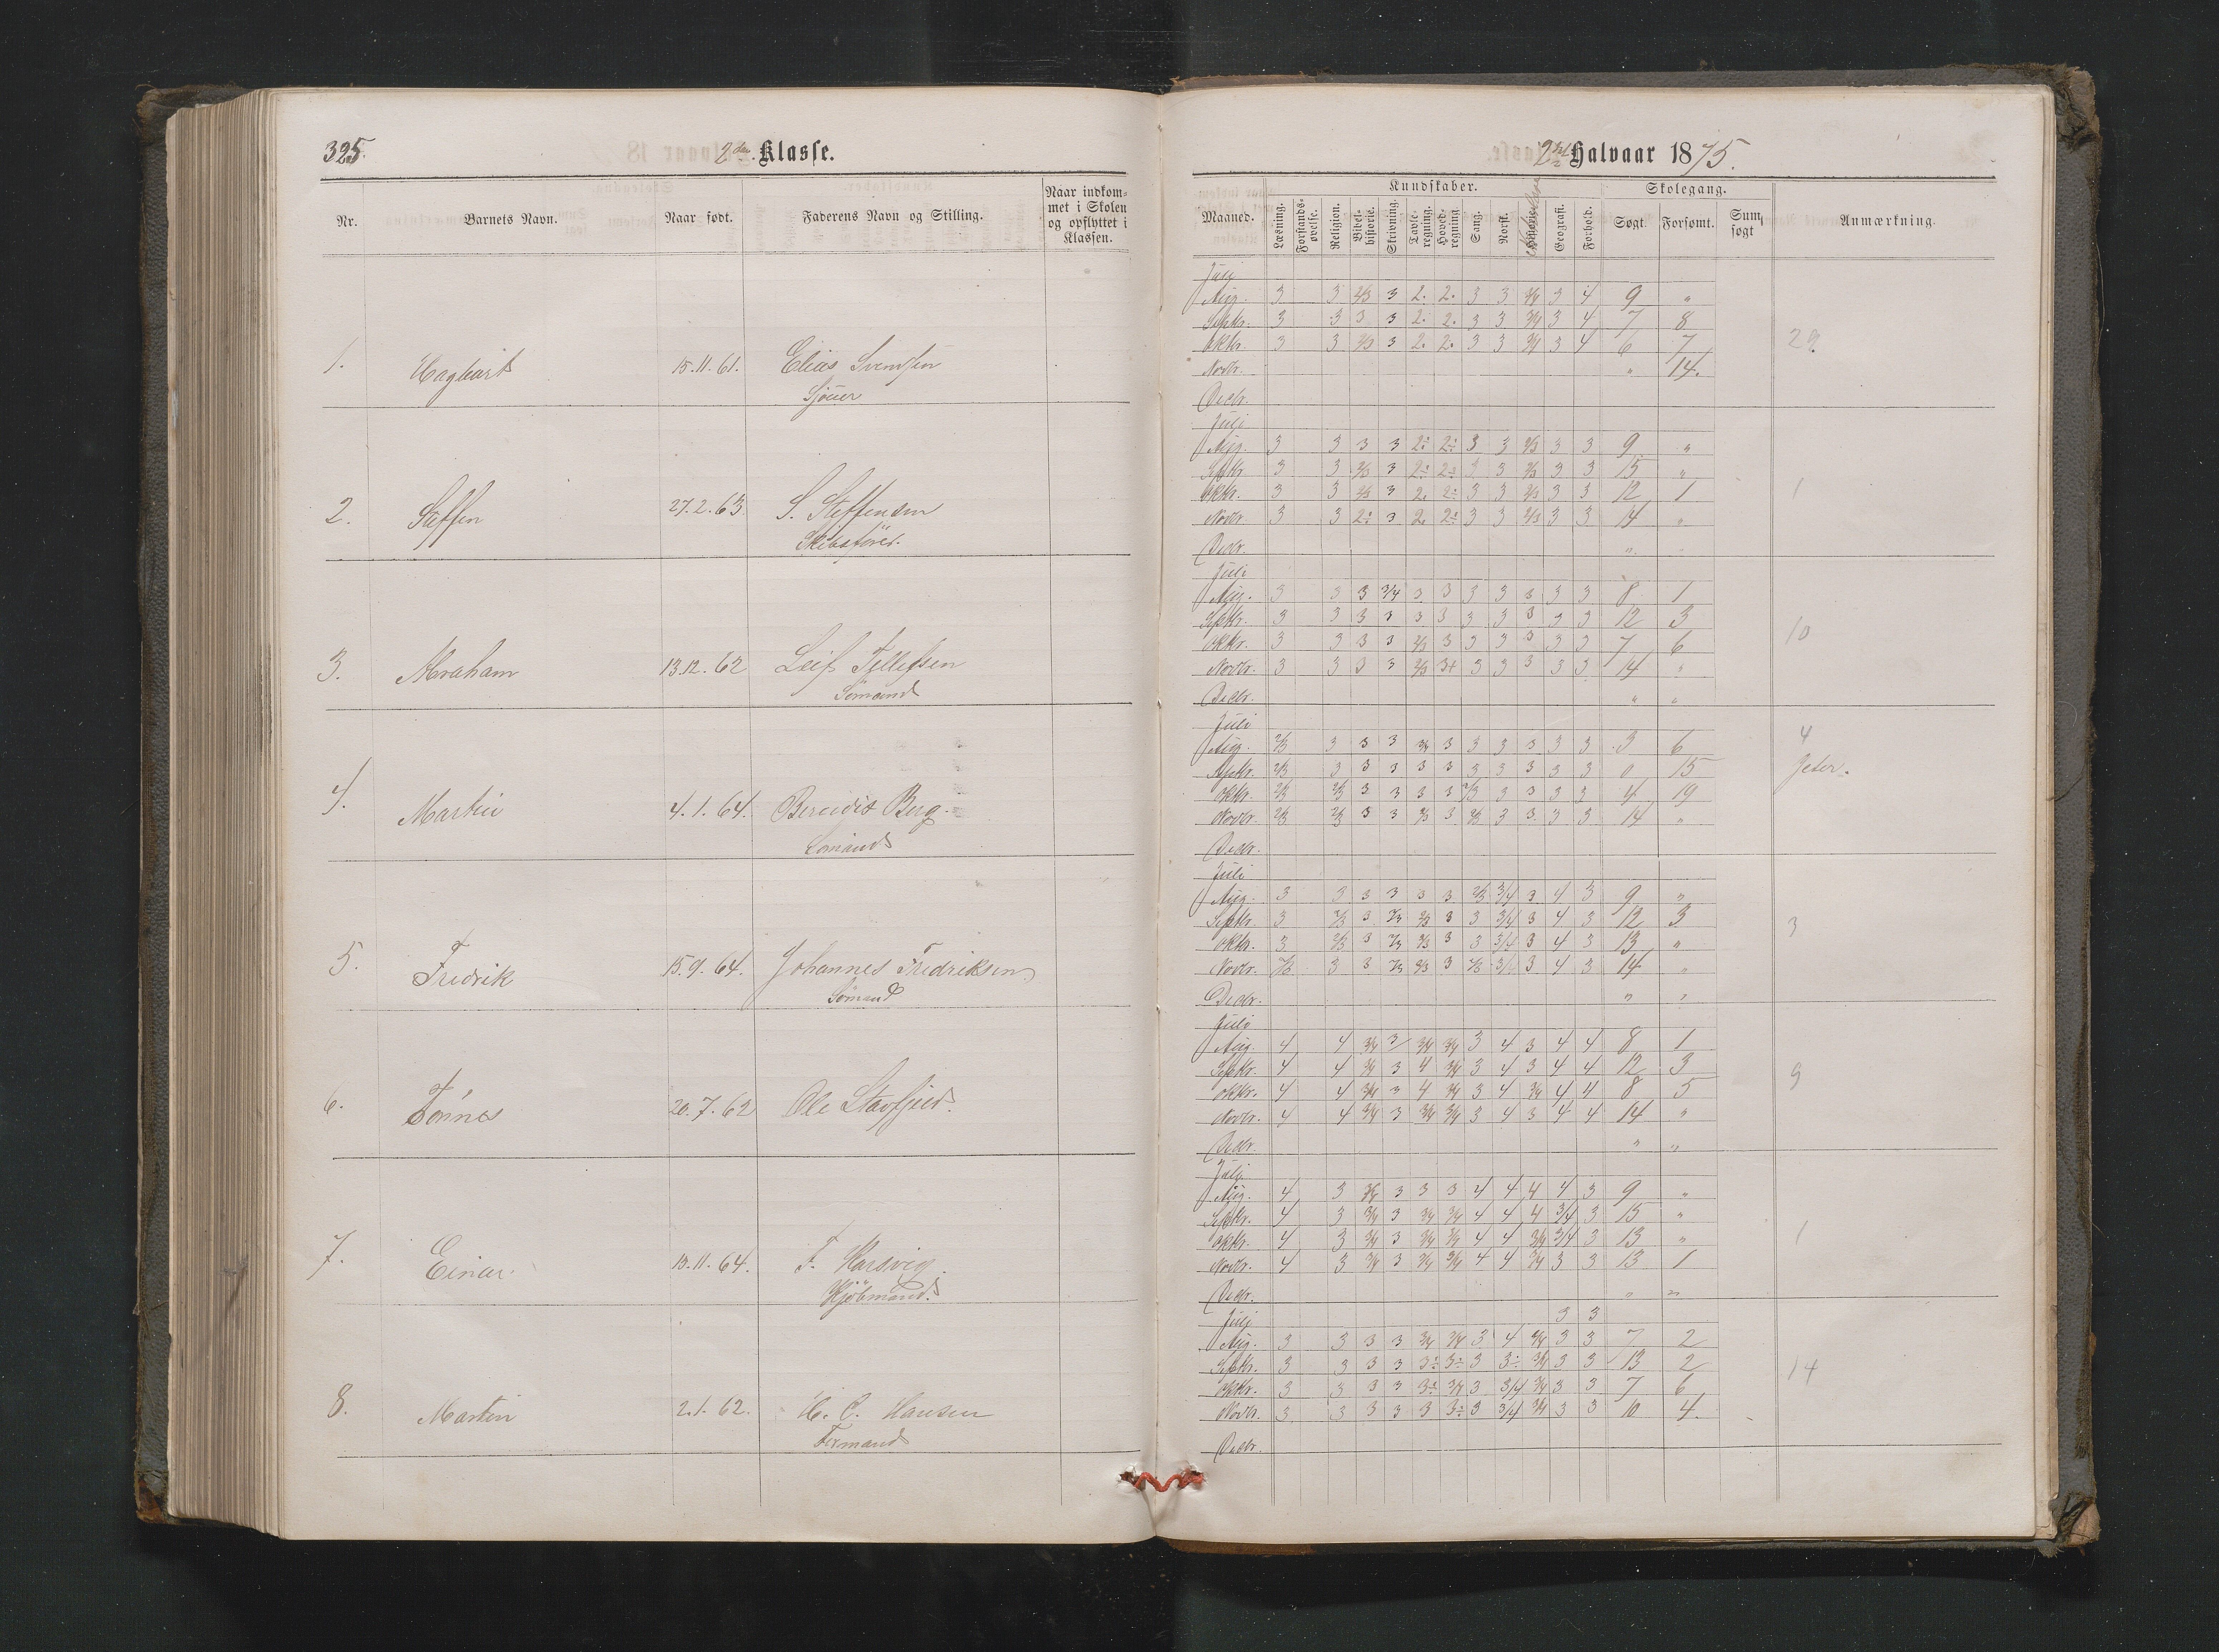 325.
2den Klasse.
Nr.
Barnets Navn.
Naar født.
Faderens Navn og Stilling.
Naar indkom-
met i Skolen
og opflyttet i
Klassen.
1. Hagbart 15.11.61. Elias Svendsen
Sjöuer
2. Steffen 27.2.63. S. Steffensen
Skibsförer.
3. Abraham 13.12.62 Leif Tellefsen
Sömand
4. Martin 4.1.64. Berendts Berg.
Sömand
5. Fredrik 15.9.64. Johannes Fredriksen
Sömand
6. Tönnes 20.7.62 Ole
7. Einar. 13.11.64. F. Harsvig.
Kjöbmand.
8. Martin 2.1.62. H. C. Hansen
Fermand
2det Halvaar 1875.
Maaned.
Kundskaber.
Skolegang.
Anmærkning.
Læsning.
Forstands-
øvelse.
Religion.
Bibel-
historie.
Skrivning.
Tavle-
regning.
Hoved-
regning
Sang.
Norsk.
Geografi.
Forhold.
Søgt.
Forsømt.
Sum
søgt
Juli
Aug. 3 3 2/3 3 2. 2. 3 3 3/4 3 4 9 "
Septbr. 3 3 3 3 2. 2. 3 3 3/4 3 4 7 8
Oktbr. 3 3 2/3 3 2. 2. 3 3 3/4 3 4 6 7 29
Novbr. " 14.
Decbr.
Juli
Aug. 3 3 3 3 2÷ 2÷ 3 3 2/3 3 3 9 "
Septbr. 3 3 2/3 3 2÷ 2÷ 3 3 2/3 3 3 15 "
Oktbr. 3 3 2/3 3 2. 2÷ 3 3 2/3 3 3 12 1 1
Novbr. 3 3 2÷ 3 2. 2÷ 3 3 2/3 3 3 14 "
Decbr. "
Juli
Aug. 3 3 3 3/4 3 3 3 3 3 3 3 8 1
Septbr. 3 3 3 3 3 3 3 3 3 3 3 12 3
Oktbr. 3 3 3 3 2/3 3 3 3 3 3 3 7 6 10
Novbr. 3 3 3 3 2/3 3+ 3 3 3 3 3 14 "
Decbr. " "
Juli
Aug. 2/3 3 3 3 3/4 3 3 3 3 3 3 3 6 4
Septbr. 2/3 3 3 3 3 3 3 3 3 3 3 0 15 Jeter.
Oktbr. 2/3 2/3 3 3 3 3 2/3 3 3 3 3 4 19
Novbr. 2/3 2/3 3 3 2/3 3 2/3 3 3 3 3 14 "
Decbr.
Juli
Aug. 3 3 3 3 3 3 2/3 3/4 3 4 3 9 "
Septbr. 3 2/3 3 2/3 2/3 3 3 3/4 3 4 3 12 3
Oktbr. 3 2/3 3 2/3 2/3 3 3 3/4 3 4 3 13 " 3
Novbr. 2/3 3 3 2/3 2/3 3 2/3 3/4 3 4 3 14 "
Decbr. " "
Juli
Aug. 4 4 3/4 3 3/4 3/4 3 4 3 4 4 8 1
Septbr. 4 4 3/4 3 4 3/4 3 4 3 4 4 12 3
Oktbr. 4 4 3/4 3 4 3/4 3 4 3/4 4 4 8 5 9
Novbr. 4 4 3/4 3 3/4 3/4 3 4 3 4 4 14 "
Decbr. " "
Juli
Aug. 4 3 3/4 3 3 3 4 4 4 4 3 9 "
Septbr. 4 3 3/4 3 3/4 3/4 4 4 4 3/4 3 15 "
Oktbr. 4 3 3/4 3 3/4 3/4 4 4 3/4 3/4 3 13 " 1
Novbr. 4 3 3/4 3 3/4 3/4 4 4 3/4 3 3 13 1
Decbr. " "
Juli 3 3
Aug. 3 3 3 3 3/4 3/4 3 4 3/4 3 3 7 2
Septbr. 3 3 3 3 3÷ 3÷ 3 3÷ 3/4 3 3 13 2
Oktbr. 3 3 3 3 3÷ 3/4 3 3/4 3/4 3 3 7 6 14
Novbr. 3 3 3 3 3 3÷ 3 3/4 3/4 3 3 10 4.
Decbr.